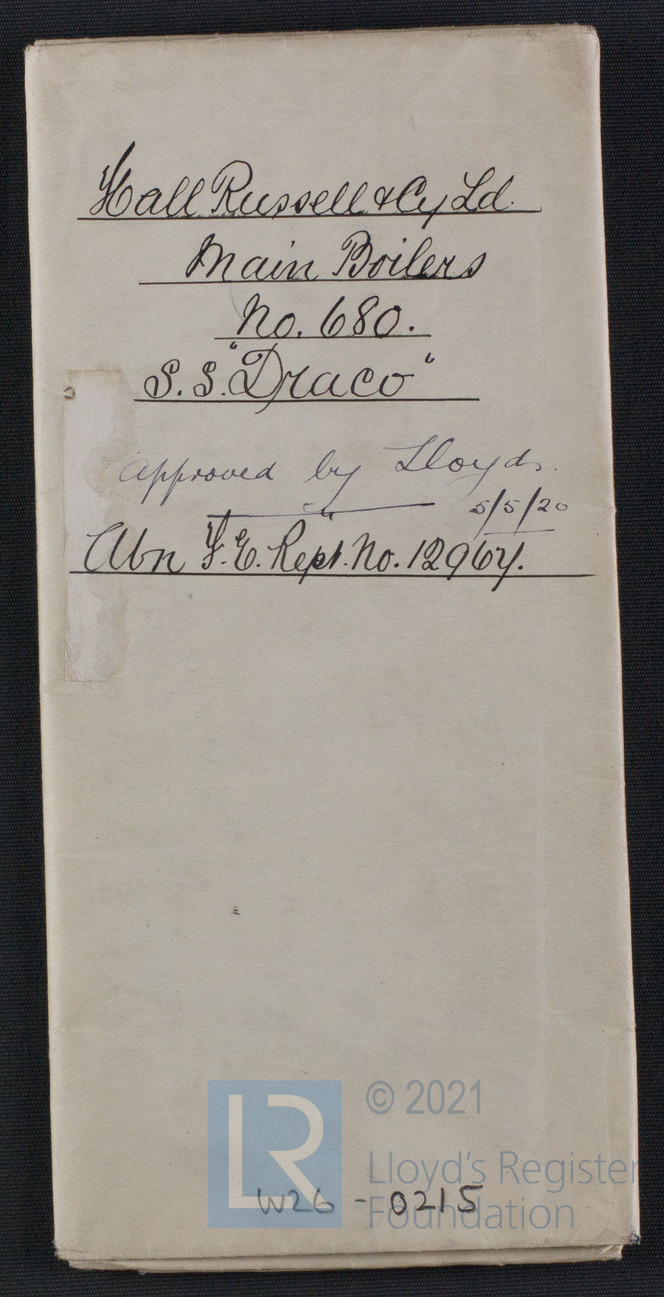 Hall Russell & Cy Ld.
Main Boilers
No. 680.
S.S. "Draco"
Approved by Lloyds.
5/5/20
Abn F.E. Rept. No. 12964.
LR
© 2021
Lloyd's Register
Foundation
W26 - 0215